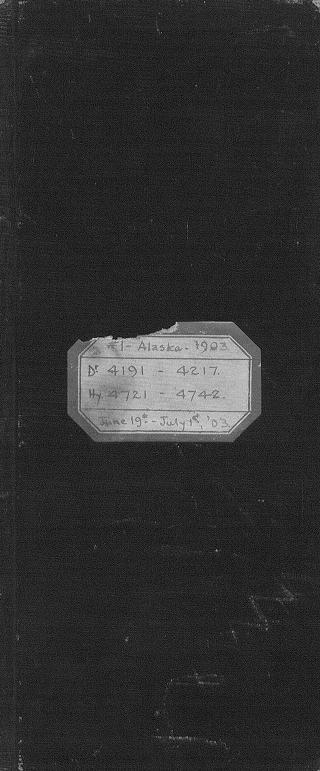 #1- Alaska. 1903
Dr 4191 - 4217.
Hy. 4721 - 4742.
June 19th - July 1st, '03.